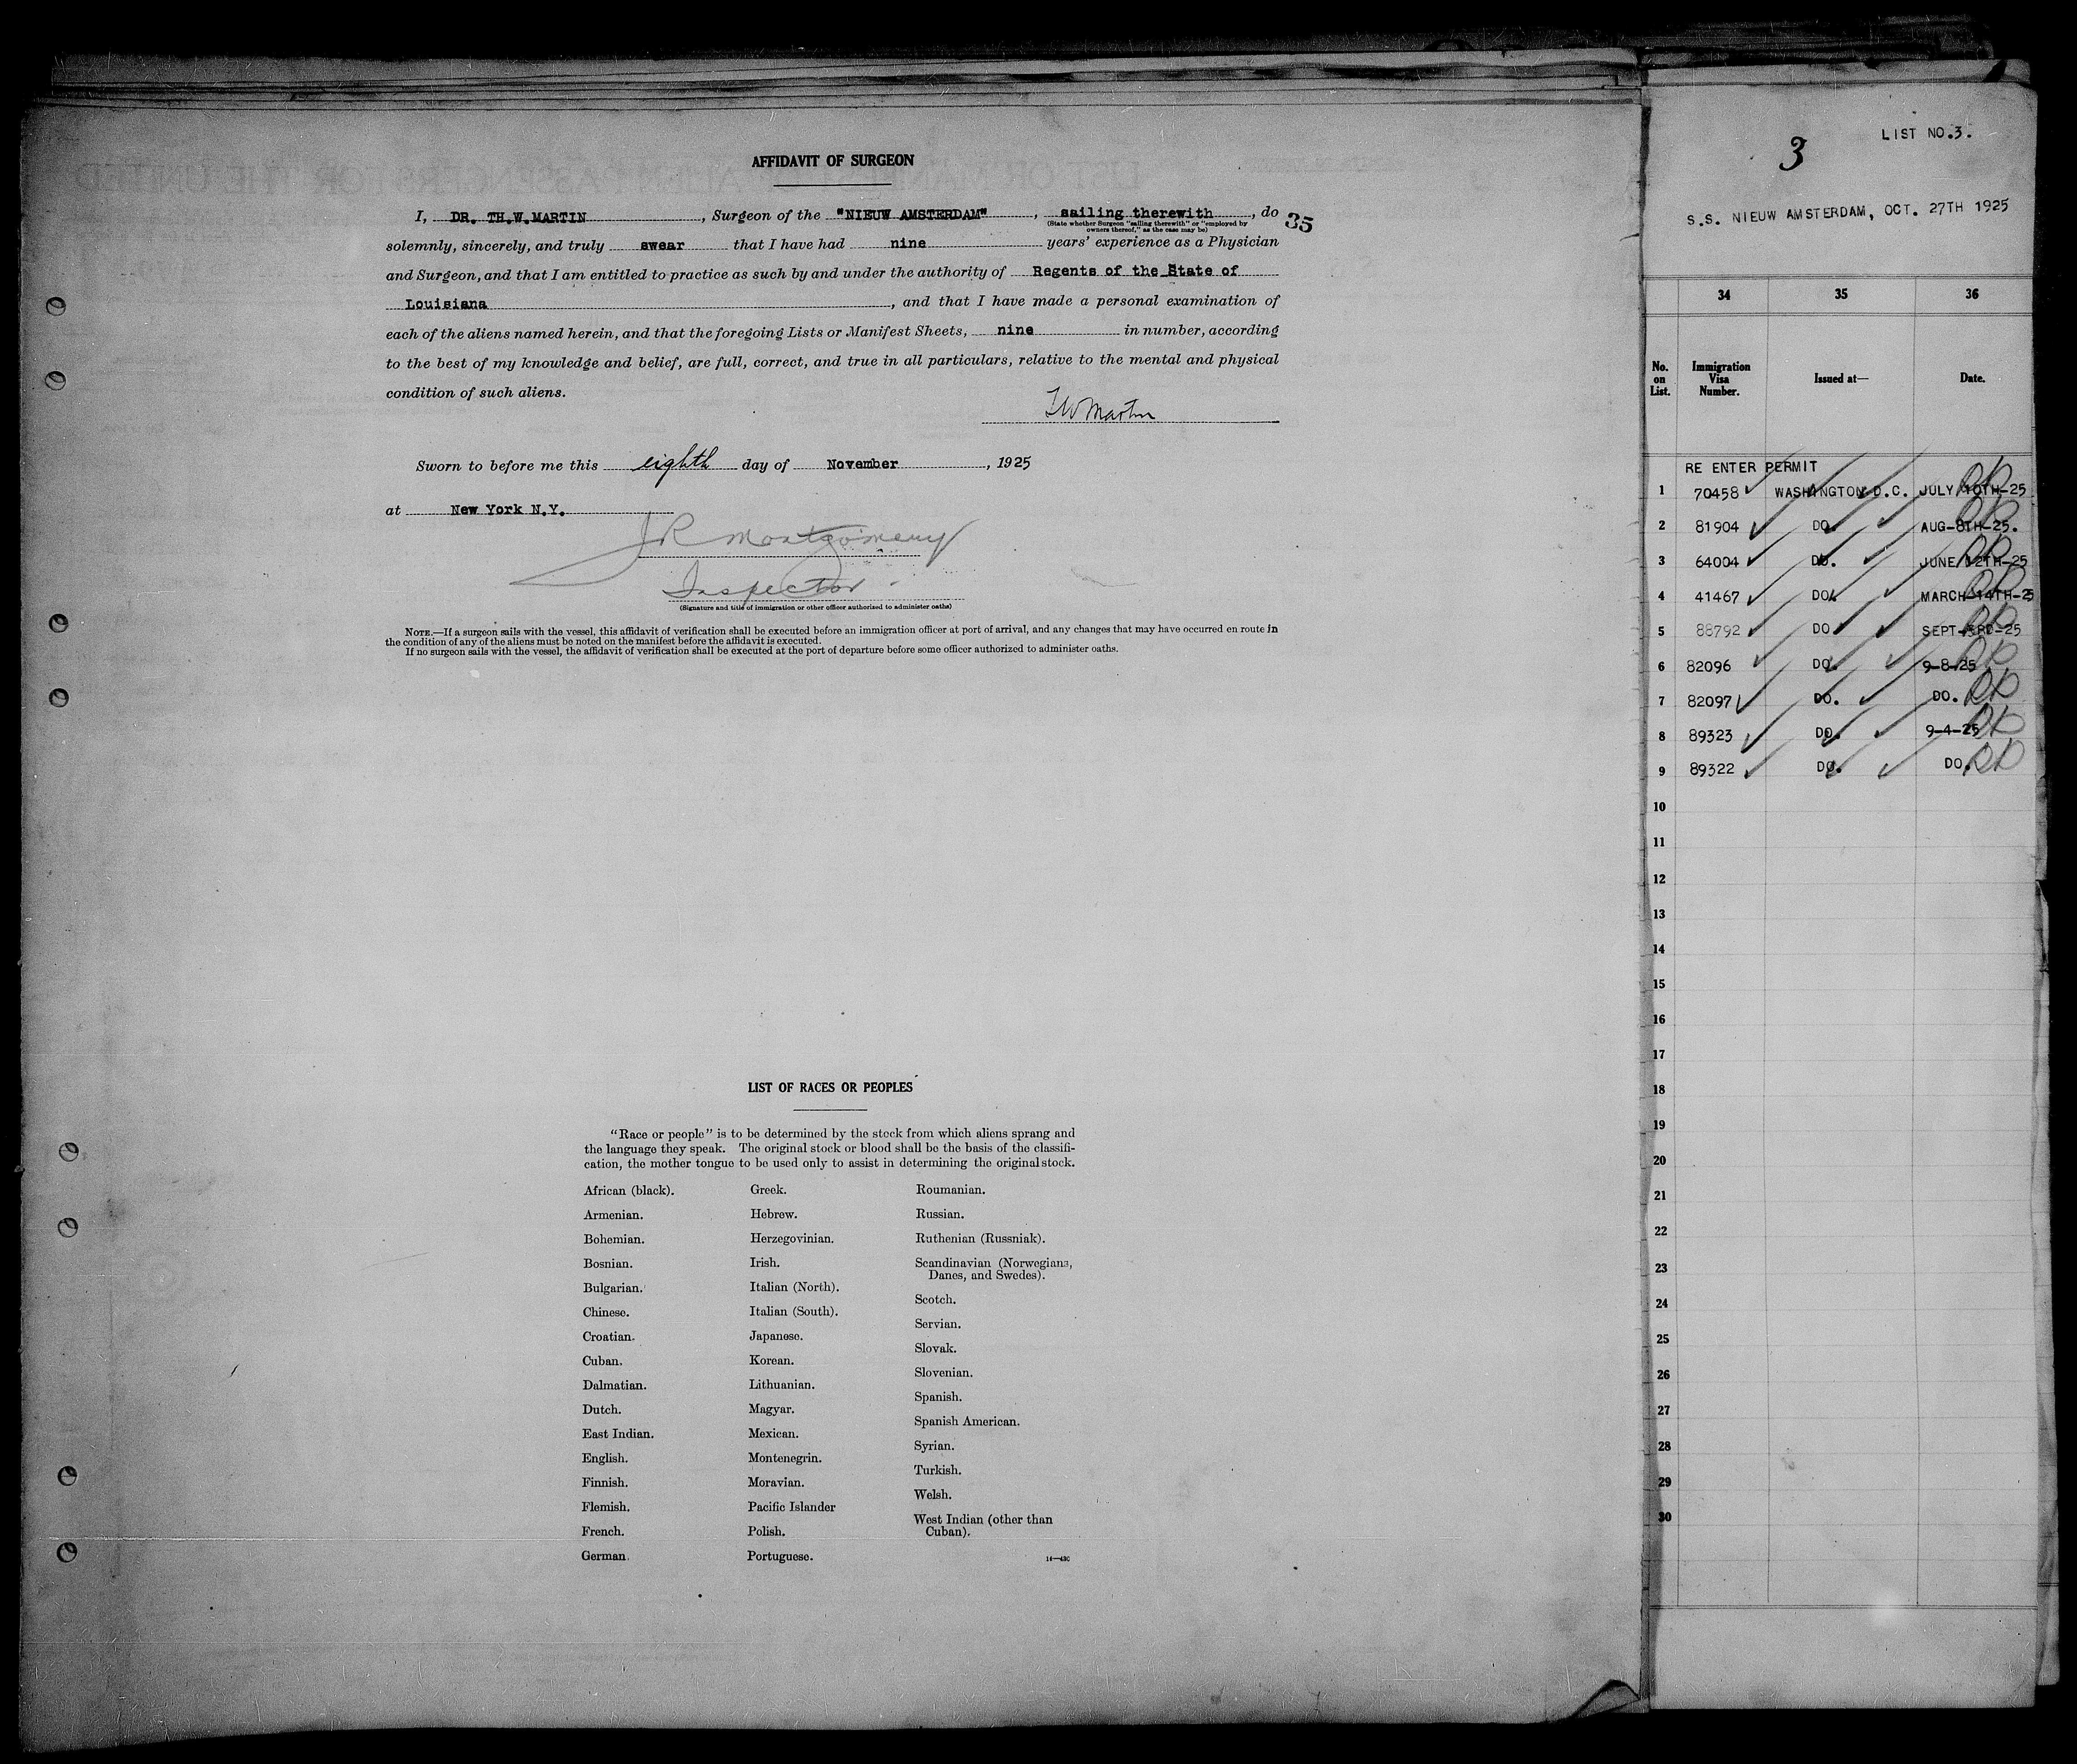 AFFIDAVIT OF SURGEON
I, DR. TH.W.MARTIN, Surgeon of the "NIEUW AMSTERDAM", sailing therewith, do
(State whether Surgeon "sailing therewith" or "employed by owners thereof," as the case may be)
35
solemnly, sincerely, and truly swear that I have had nine years' experience as a Physician
and Surgeon, and that I am entitled to practice as such by and under the authority of Regents of the State of
Louisiana, and that I have made a personal examination of
each of the aliens named herein, and that the foregoing Lists or Manifest Sheets, nine in number, according
to the best of my knowledge and belief, are full, correct, and true in all particulars, relative to the mental and physical
condition of such aliens.
TW Martin
Sworn to before me this eighth day of November, 1925
at New York N.Y.
JR Montgomery
Inspector
(Signature and title of immigration or other officer authorized to administer oaths)
NOTE.—If a surgeon sails with the vessel, this affidavit of verification shall be executed before an immigration officer at port of arrival, and any changes that may have occurred en route in
the condition of any of the aliens must be noted on the manifest before the affidavit is executed.
If no surgeon sails with the vessel, the affidavit of verification shall be executed at the port of departure before some officer authorized to administer oaths.
LIST OF RACES OR PEOPLES
"Race or people" is to be determined by the stock from which aliens sprang and
the language they speak. The original stock or blood shall be the basis of the classifi-
cation, the mother tongue to be used only to assist in determining the original stock.
African (black).
Armenian.
Bohemian.
Bosnian.
Bulgarian.
Chinese.
Croatian.
Cuban.
Dalmatian.
Dutch.
East Indian.
English.
Finnish.
Flemish.
French.
German.
Greek.
Hebrew.
Herzegovinian.
Irish.
Italian (North).
Italian (South).
Japanese.
Korean.
Lithuanian.
Magyar.
Mexican.
Montenegrin.
Moravian.
Pacific Islander
Polish.
Portuguese.
Roumanian.
Russian.
Ruthenian (Russniak).
Scandinavian (Norwegians,
Danes, and Swedes).
Scotch.
Servian.
Slovak.
Slovenian.
Spanish.
Spanish American.
Syrian.
Turkish.
Welsh.
West Indian (other than
Cuban).
3
LIST NO.3.
S.S. NIEUW AMSTERDAM, OCT. 27TH 1925
34 35 36
No. on List. Immigration Visa Number. Issued at— Date.
RE ENTER PERMIT
1 70458 WASHINGTON D.C. JULY 10TH-25
2 81904 DO. AUG-8TH-25.
3 64004 DO. JUNE 12TH-25
4 41467 DO. MARCH-14TH-25
5 88792 DO. SEPT-3RD-25
6 82096 DO. 9-8-25
7 82097 DO. DO.
8 89323 DO. 9-4-25
9 89322 DO. DO.
10
11
12
13
14
15
16
17
18
19
20
21
22
23
24
25
26
27
28
29
30